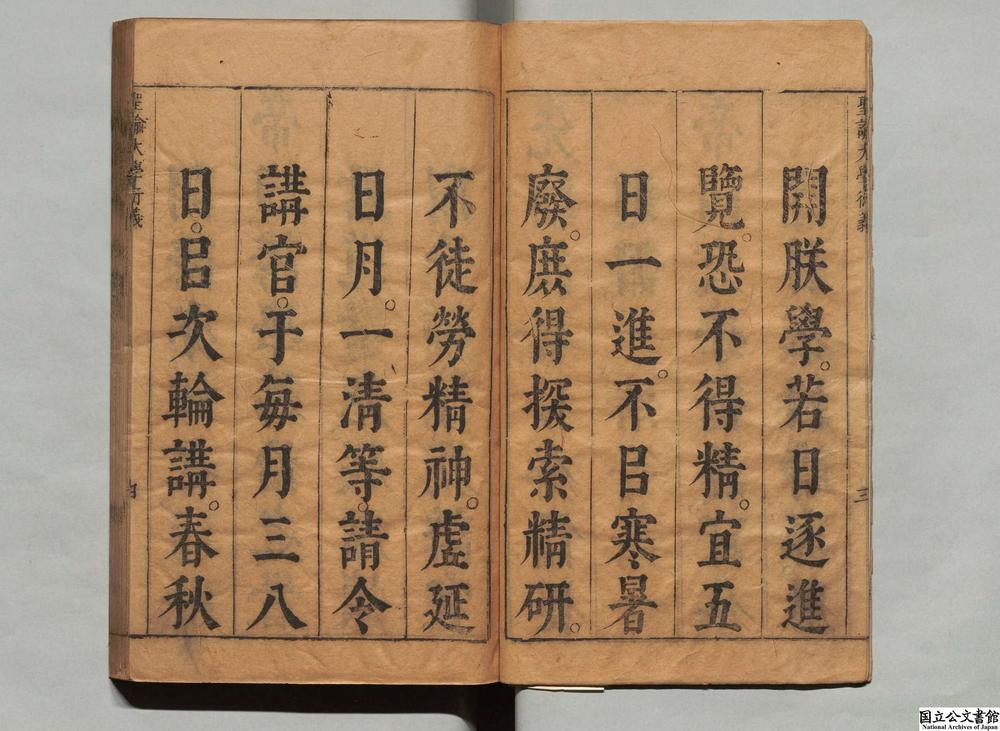 聖諭大學衍義
三
開朕學。若日逐進
覽。恐不得精。宜五
日一進。不㠯寒暑
廢。庶得探索精研。
不徒勞精神。虛延
日月。一清等。請令
講官。于每月三八
日。㠯次輪講。春秋
聖諭大學衍義
四
国立公文書館
National Archives of Japan